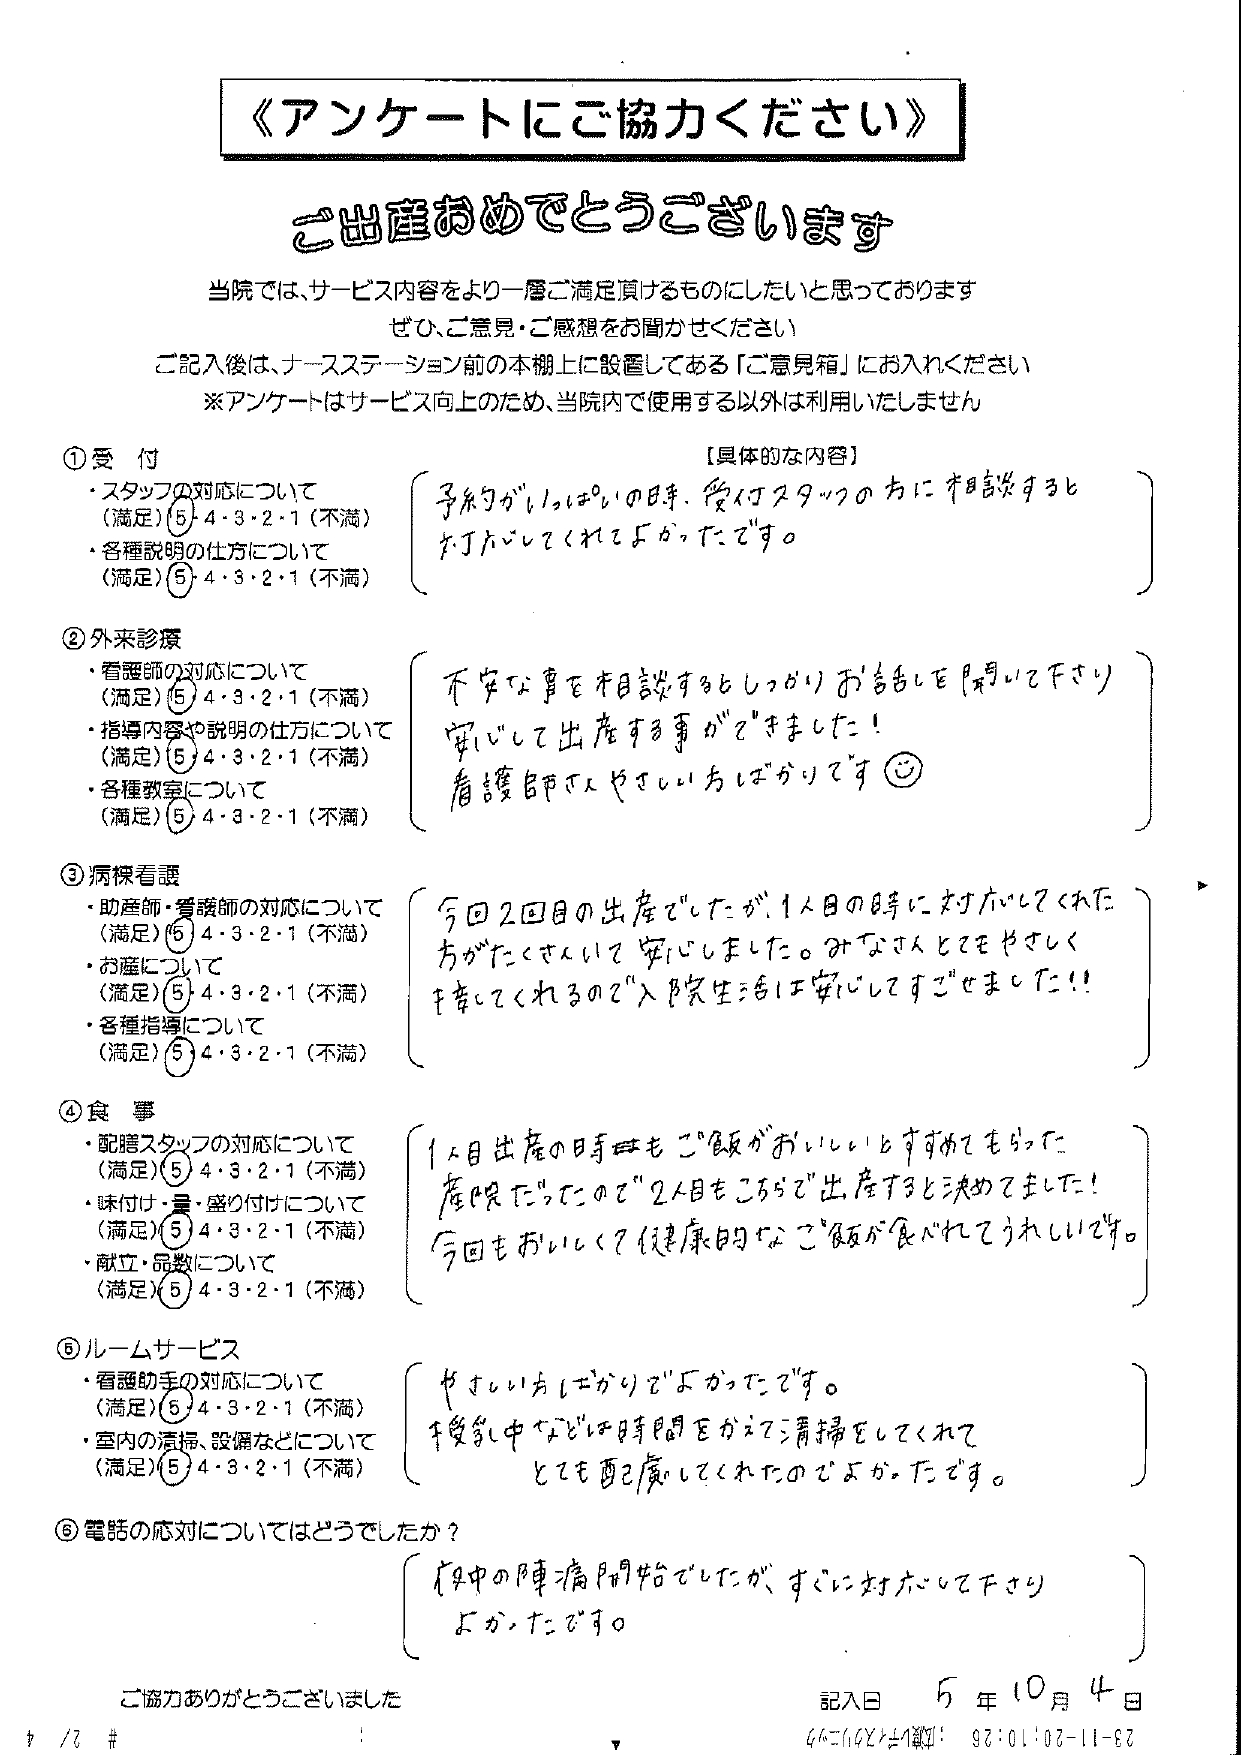 《アンケートにご協力ください》
ご出産おめでとうございます
当院では、サービス内容をより一層ご満足頂けるものにしたいと思っております
ぜひ、ご意見・ご感想をお聞かせください
ご記入後は、ナースステーション前の本棚上に設置してある「ご意見箱」にお入れください
※アンケートはサービス向上のため、当院内で使用する以外は利用いたしません
①受 付
【具体的な内容】
・スタッフの対応について
(満足)5・4・3・2・1(不満)
・各種説明の仕方について
(満足)5・4・3・2・1(不満)
予約がいっぱいの時、受付スタッフの方に相談すると
対応してくれてよかったです。
②外来診療
・看護師の対応について
(満足)5・4・3・2・1(不満)
・指導内容や説明の仕方について
(満足)5・4・3・2・1(不満)
・各種教室について
(満足)5・4・3・2・1(不満)
不安な事を相談するとしっかりお話しを聞いて下さり
安心して出産する事ができました!
看護師さんやさしい方ばかりです☺
③病棟看護
・助産師・看護師の対応について
(満足)5・4・3・2・1(不満)
・お産について
(満足)5・4・3・2・1(不満)
・各種指導について
(満足)5・4・3・2・1(不満)
今回2回目の出産でしたが、1人目の時に対応してくれた
方がたくさんいて安心しました。みなさんとてもやさしく
接してくれるので入院生活は安心してすごせました!!
④食 事
・配膳スタッフの対応について
(満足)5・4・3・2・1(不満)
・味付け・量・盛り付けについて
(満足)5・4・3・2・1(不満)
・献立・品数について
(満足)5・4・3・2・1(不満)
1人目出産の時もご飯がおいしいとすすめてもらった
産院だったので2人目もこちらで出産すると決めてました!
今回もおいしくて健康的なご飯が食べれてうれしいです。
⑤ルームサービス
・看護助手の対応について
(満足)5・4・3・2・1(不満)
・室内の清掃、設備などについて
(満足)5・4・3・2・1(不満)
やさしい方ばかりでよかったです。
授乳中などは時間をかえて清掃をしてくれて
とても配慮してくれたのでよかったです。
⑥電話の応対についてはどうでしたか?
夜中の陣痛開始でしたが、すぐに対応して下さり
よかったです。
ご協力ありがとうございました
記入日 5年10月4日
23-11-20;10:26 ;広瀬レディスクリニック
# 2/ 4